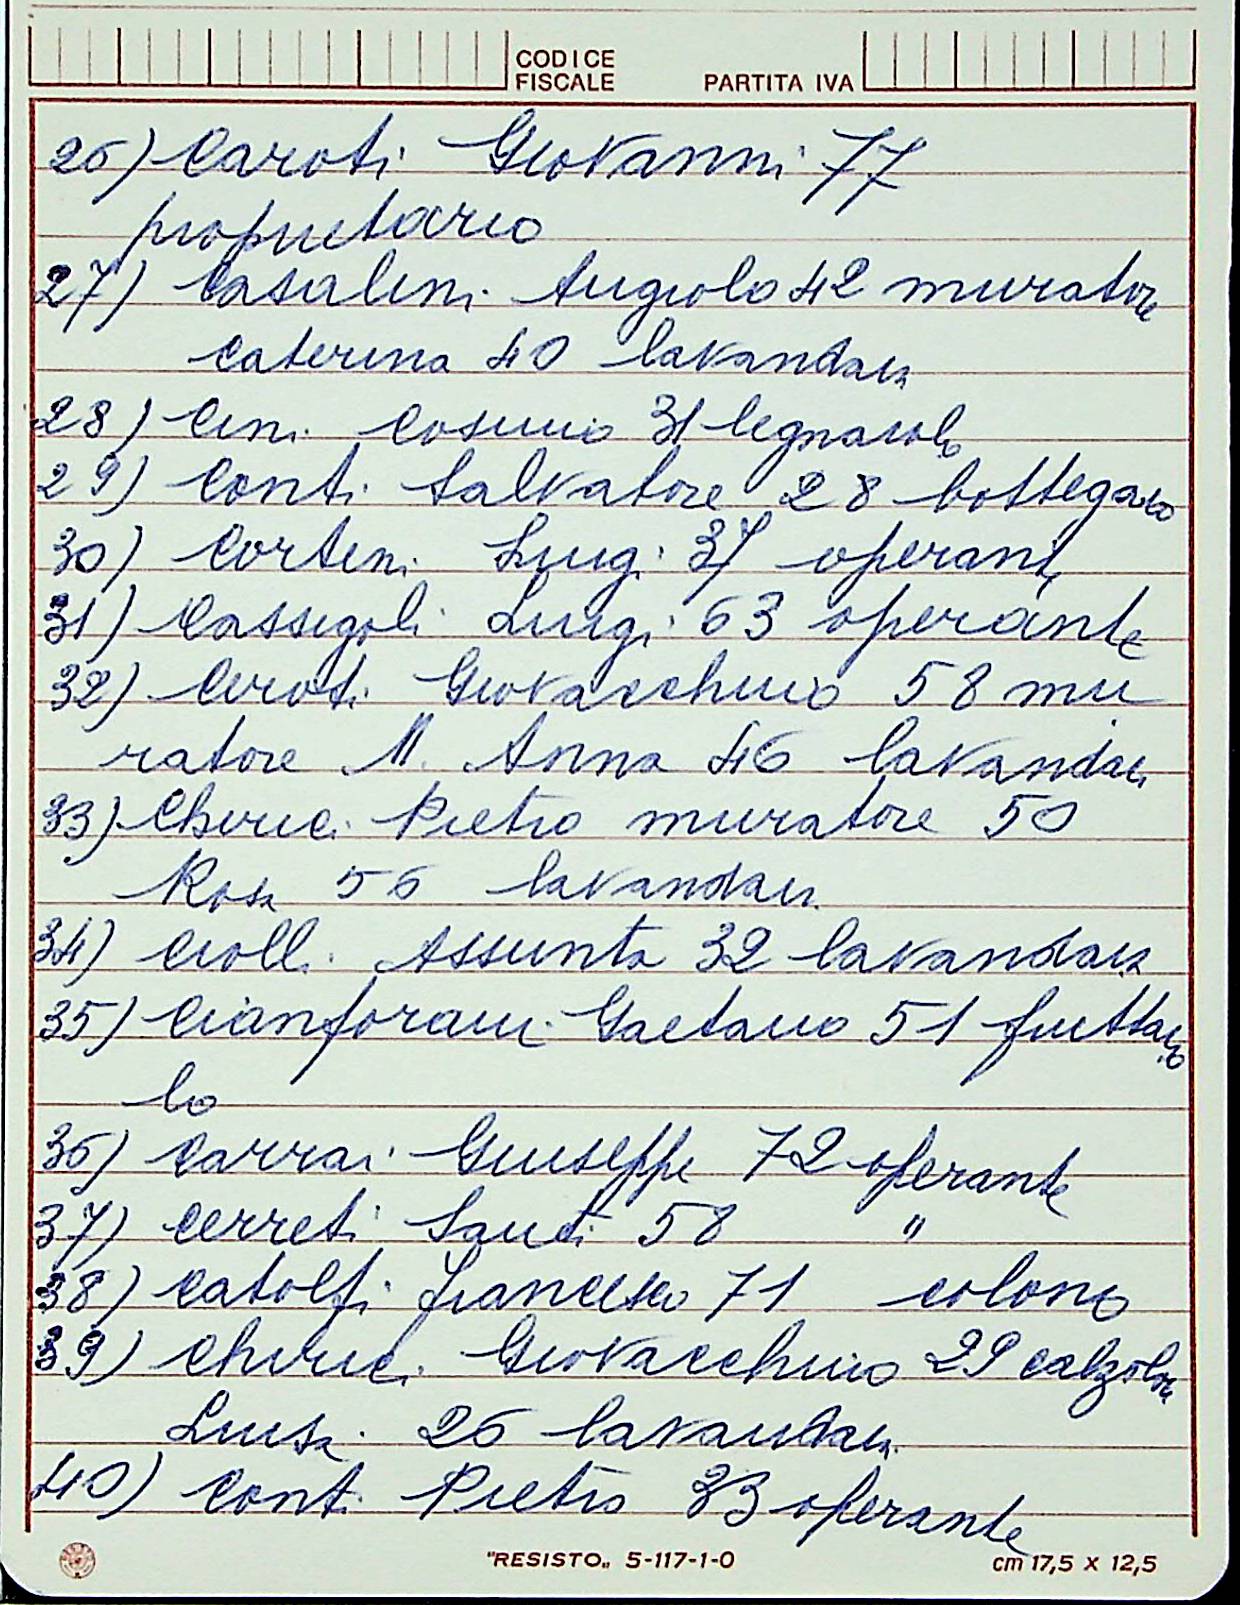 CODICE
FISCALE PARTITA IVA
26) Caroti Giovanni 77
proprietario
27) Casalini Angiolo 42 muratore
Caterina 40 lavandaia
28) Cini Cosimo 31 legnaiolo
29) Conti Salvatore 28 bottegaio
30) Cortini Luigi 37 operante
31) Cassigoli Luigi 63 operante
32) Ciroti Giovacchino 58 mu
ratore M. Anna 46 lavandaia
33) Chirici Pietro muratore 50
Rosa 56 lavandaia
34) Ciolli Assunta 32 lavandaia
35) Cianforani Gaetano 51 fruttaio
lo
36) Carrai Giuseppe 72 operante
37) Cerreti Santi 58 "
38) Catolfi Francesco 71 colono
39) Chirici Giovacchino 29 calzolaio
Luisa 26 lavandaia
40) Conti Pietro 33 operante
"RESISTO" 5-117-1-0 cm 17,5 x 12,5